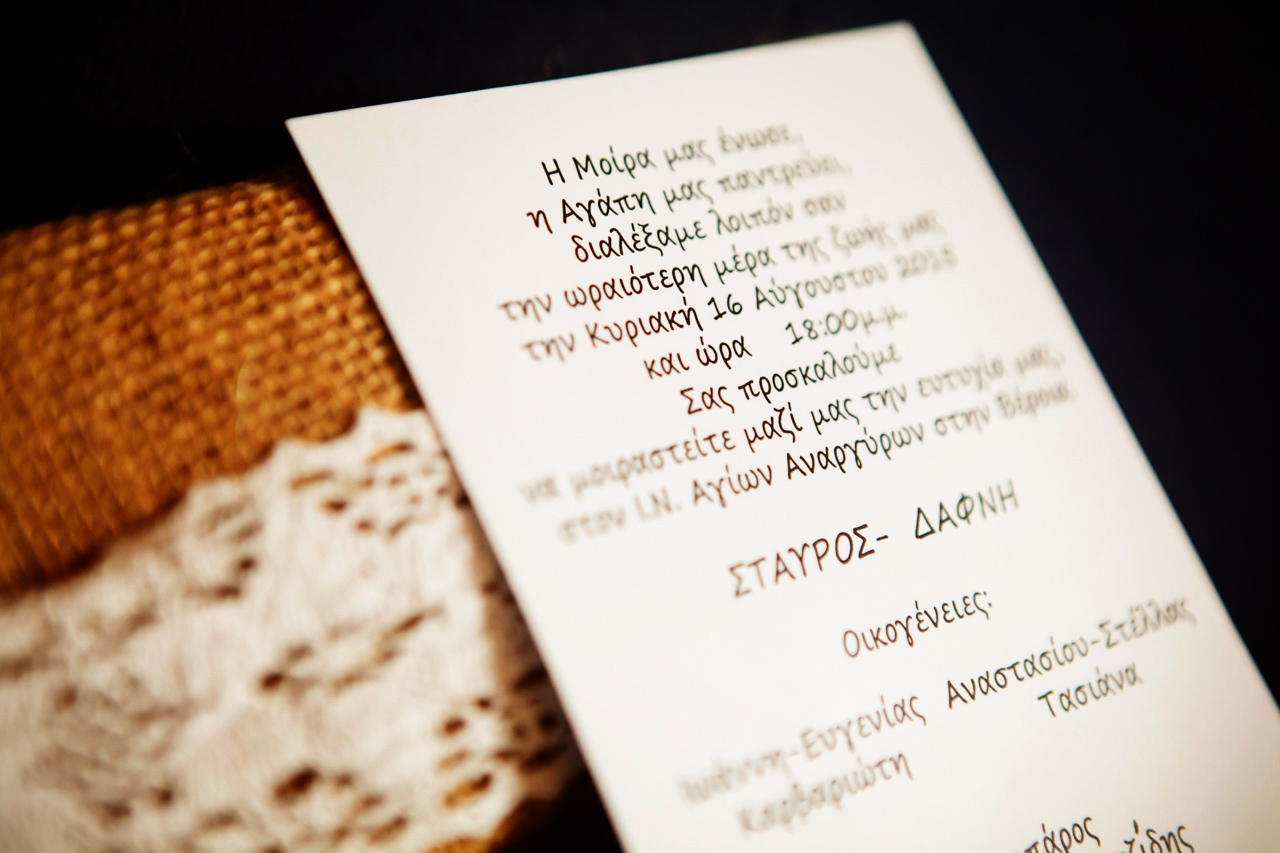 Η Μοίρα μας ένωσε,
η Αγάπη μας παντρεύει,
διαλέξαμε λοιπόν σαν
την ωραιότερη μέρα της ζωής μας
την Κυριακή 16 Αύγουστου 2015
και ώρα 18:00μ.μ.
Σας προσκαλούμε
να μοιραστείτε μαζί μας την ευτυχία μας,
στον Ι.Ν. Αγίων Αναργύρων στην Βέροια.
ΣΤΑΥΡΟΣ- ΔΑΦΝΗ
Οικογένειες:
Ιωάννη-Ευγενίας Αναστασίου-Στέλλας
Καρβαριώτη Τασιάνα